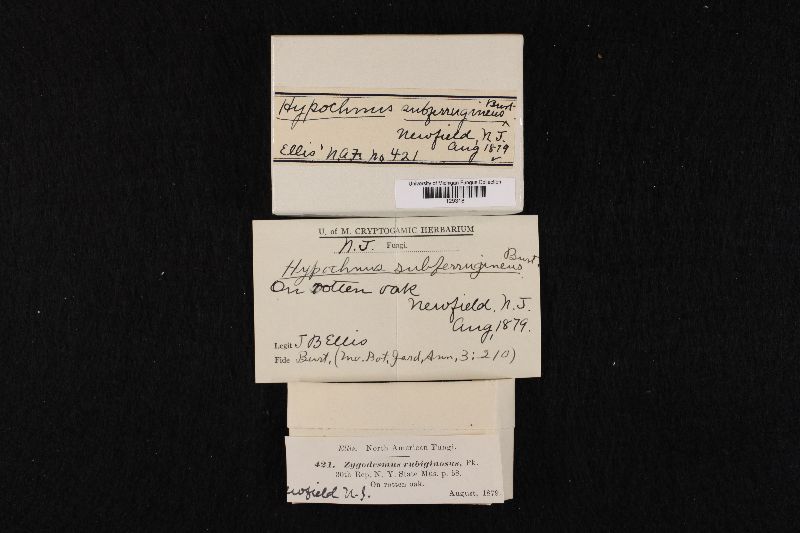 Hypochnus subferrugineus Burt.
Newfield, N.J.
Aug 1879
Ellis' N.A.F. no 421
University of Michigan Fungus Collection
129318
U. of M. CRYPTOGAMIC HERBARIUM
N.J. Fungi.
Hypochnus subferrugineus Burt.
On rotten oak
Newfield, N.J.
Aug, 1879.
Legit J B Ellis
Fide Burt, (Mo. Bot, Gard, Ann, 3: 210)
Ellis. North American Fungi.
421. Zygodesmus rubiginosus, Pk.
30th Rep. N. Y. State Mus. p. 58.
On rotten oak.
Newfield N.J. August, 1879.